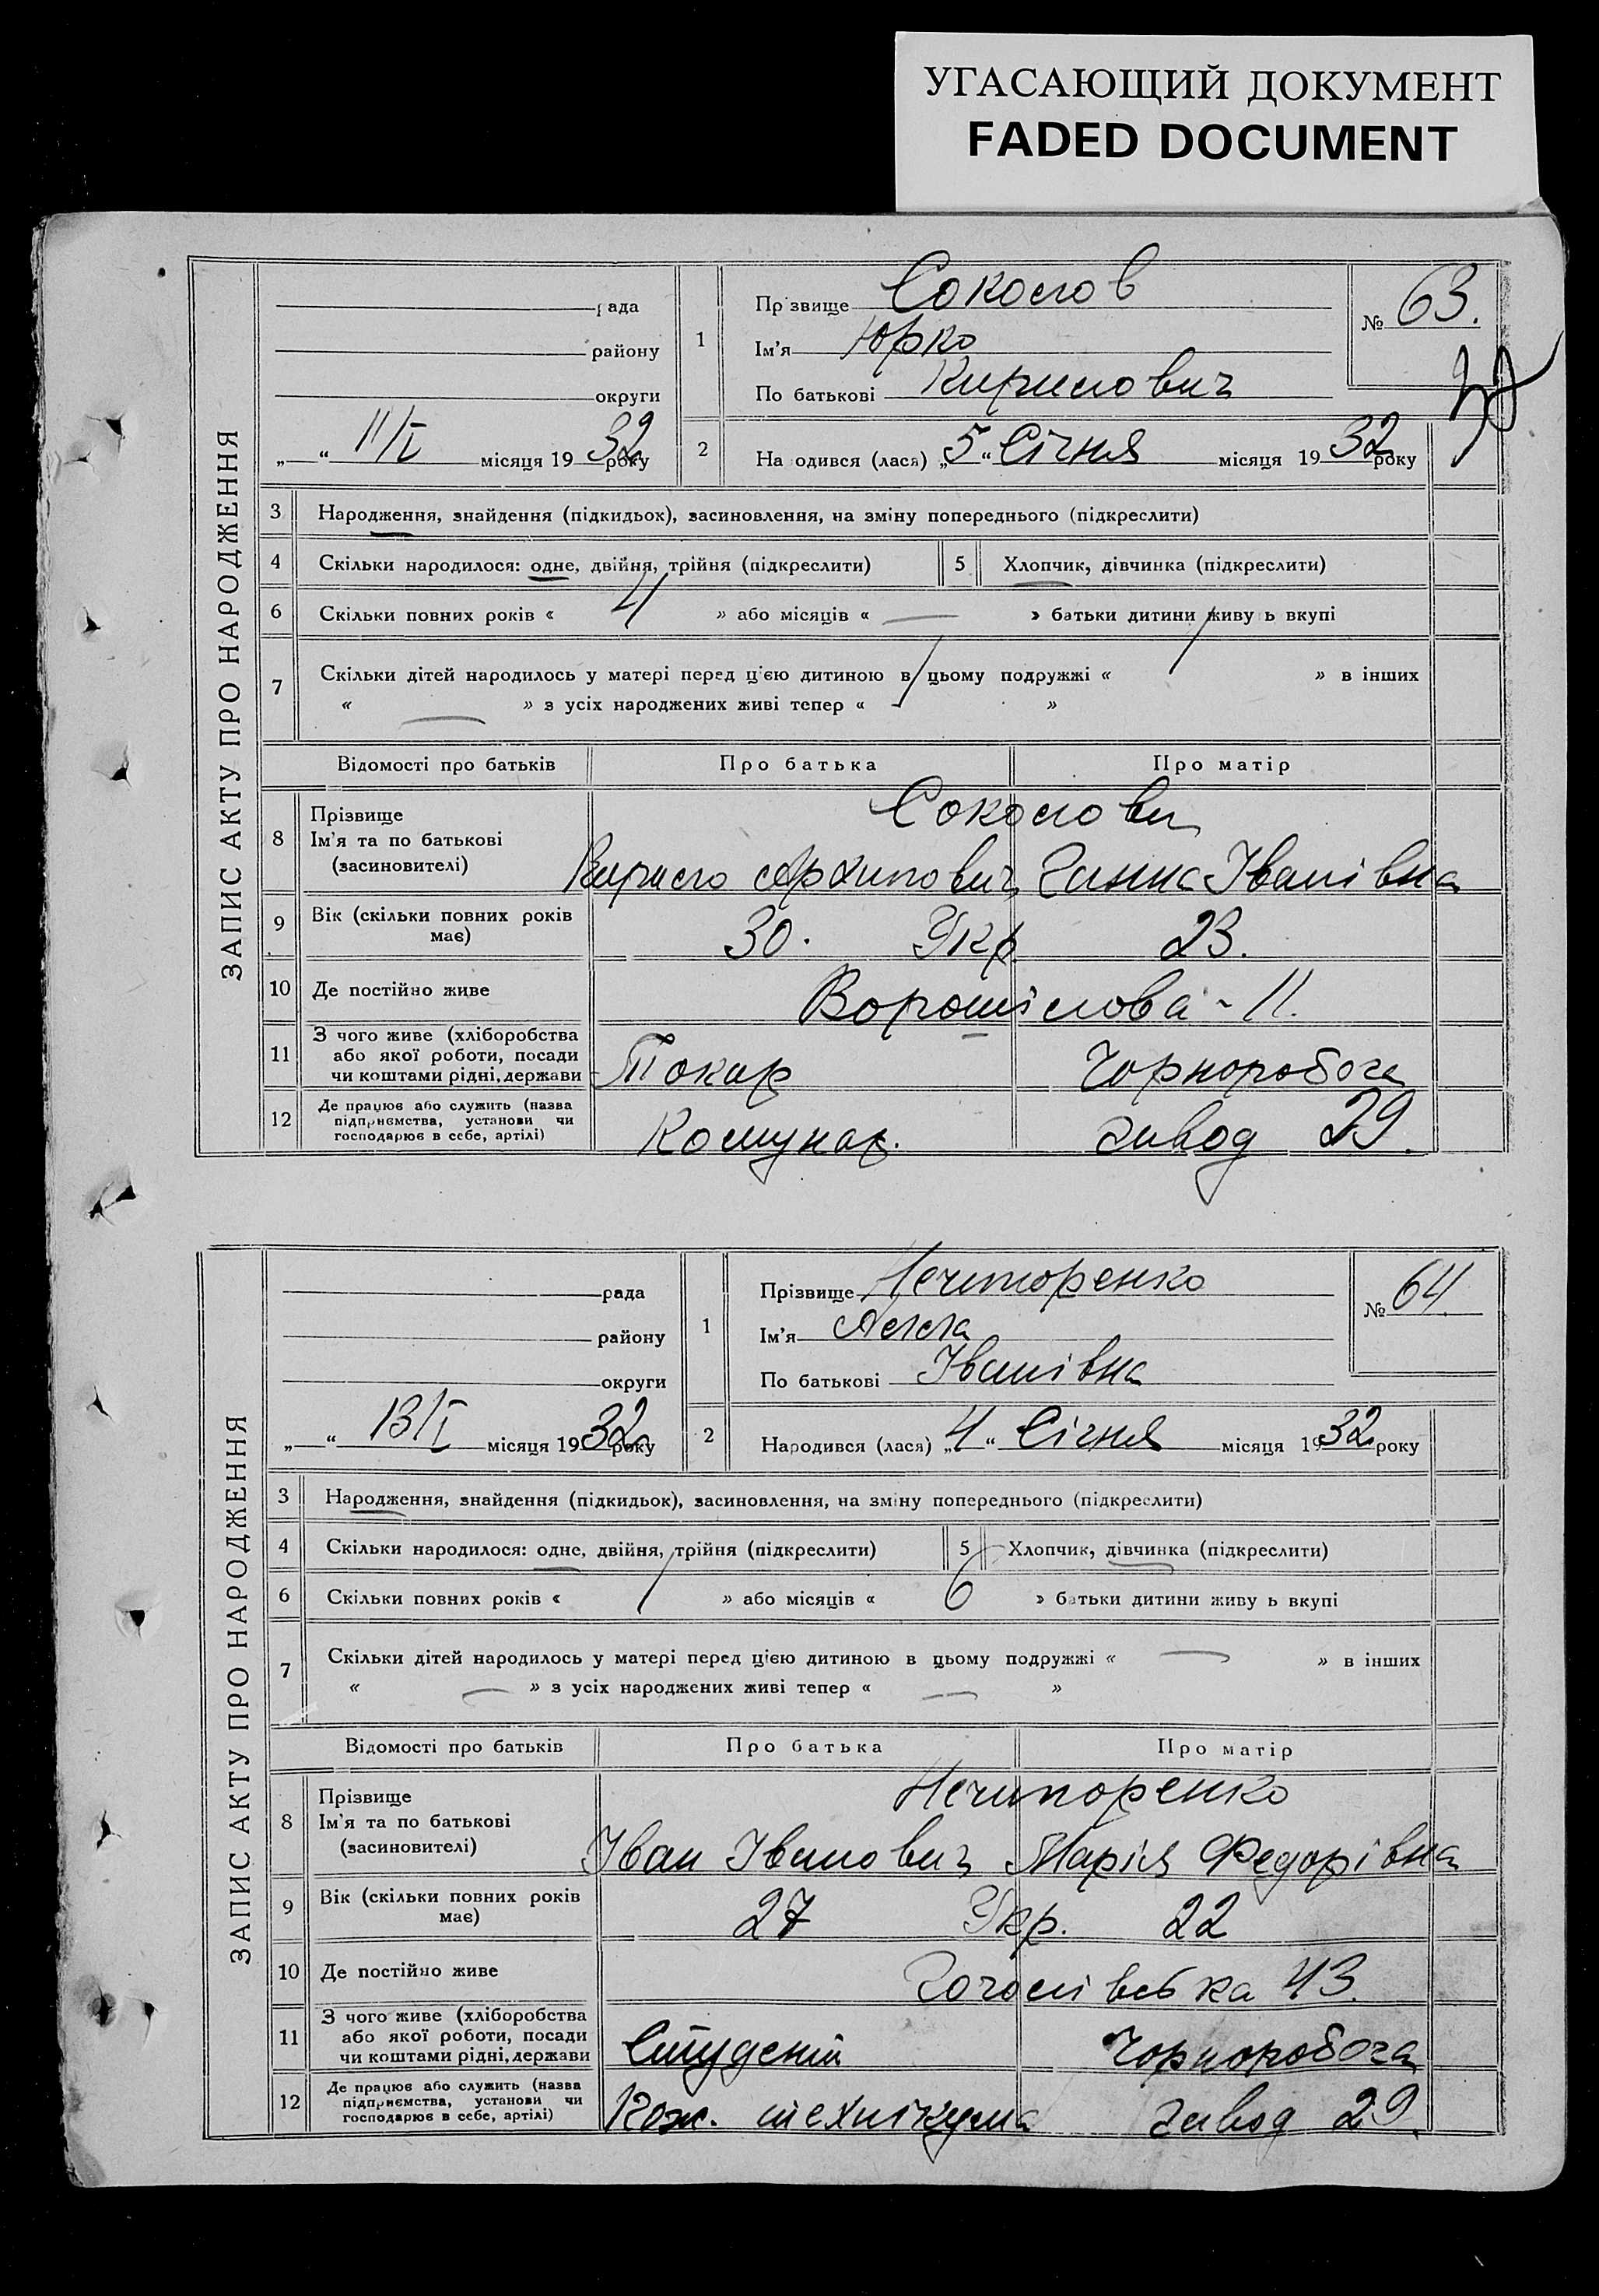 УГАСАЮЩИЙ ДОКУМЕНТ
FADED DOCUMENT
ЗАПИС АКТУ ПРО НАРОДЖЕННЯ
рада
району
округи
„ “ 11/I місяця 1932 року
1
Прізвище Соколов
Ім'я Юрко
По батькові Кирилович
№ 63.
2
Народився (лася) „5“ Січня місяця 1932 року
3 Народження, знайдення (підкидьок), засиновлення, на зміну попереднього (підкреслити)
4 Скільки народилося: одне, двійня, трійня (підкреслити)
5 Хлопчик, дівчинка (підкреслити)
6 Скільки повних років « 4 » або місяців « — » батьки дитини живуть вкупі
7 Скільки дітей народилось у матері перед цією дитиною в цьому подружжі « 1 » в інших
« — » з усіх народжених живі тепер « 1 »
Відомості про батьків Про батька Про матір
8 Прізвище
Ім'я та по батькові
(засиновителі)
Соколови
Кирило Архипович Ганна Іванівна
9 Вік (скільки повних років
має)
30. Укр. 23.
10 Де постійно живе Ворошілова - 11.
11 З чого живе (хліборобства
або якої роботи, посади
чи коштами рідні, держави
Токар Чорноробоча
12 Де працює або служить (назва
підприємства, установи чи
господарює в себе, артілі)
Комунар. завод 29.
ЗАПИС АКТУ ПРО НАРОДЖЕННЯ
рада
району
округи
„ “ 13/I місяця 1932 року
1
Прізвище Нечипоренко
Ім'я Алла
По батькові Іванівна
№ 64
2
Народився (лася) „4“ Січня місяця 1932 року
3 Народження, знайдення (підкидьок), засиновлення, на зміну попереднього (підкреслити)
4 Скільки народилося: одне, двійня, трійня (підкреслити)
5 Хлопчик, дівчинка (підкреслити)
6 Скільки повних років « 1 » або місяців « 6 » батьки дитини живуть вкупі
7 Скільки дітей народилось у матері перед цією дитиною в цьому подружжі « — » в інших
« — » з усіх народжених живі тепер « — »
Відомості про батьків Про батька Про матір
8 Прізвище
Ім'я та по батькові
(засиновителі)
Нечипоренко
Іван Іванович Марія Федорівна
9 Вік (скільки повних років
має)
27 Укр. 22
10 Де постійно живе Гоголівська 43.
11 З чого живе (хліборобства
або якої роботи, посади
чи коштами рідні, держави
Студент Чорноробоча
12 Де працює або служить (назва
підприємства, установи чи
господарює в себе, артілі)
Кож. технікума завод 29.